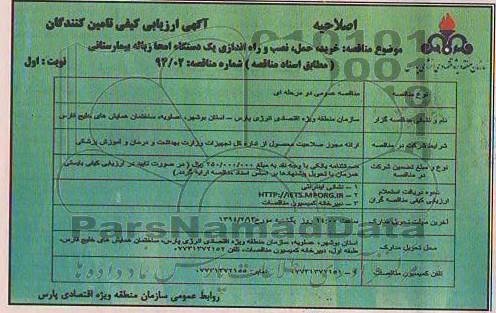 اصلاحیه
آگهی ارزیابی کیفی تامین کنندگان
موضوع مناقصه: خرید، حمل، نصب و راه اندازی یک دستگاه امحا زباله بیمارستانی
( مطابق اسناد مناقصه ) شماره مناقصه: 94/02
نوبت : اول
نوع مناقصه
مناقصه عمومی دو مرحله ای
نام و نشانی مناقصه گزار
سازمان منطقه ویژه اقتصادی انرژی پارس – استان بوشهر، عسلویه، ساختمان همایش های خلیج فارس
شرایط شرکت در مناقصه
ارائه مجوز صلاحیت محصول از اداره کل تجهیزات وزارت بهداشت و درمان و آموزش پزشکی
نوع و مبلغ تضمین شرکت در مناقصه
ضمانتنامه بانکی یا وجه نقد به مبلغ 250/000/000 ریال ( در صورت تایید در ارزیابی کیفی بایستی
همزمان با تحویل پیشنهادها بر اساس اسناد مناقصه ارایه گردد.)
نحوه دریافت استعلام
ارزیابی کیفی مناقصه گران
1 – نشانی اینترنتی
2 – HTTP://IETS.MPORG.IR
3 – دبیرخانه کمیسیون مناقصات
آخرین مهلت تحویل مدارک
ساعت 11:00 روز یکشنبه مورخ
محل تحویل مدارک
استان بوشهر، عسلویه، سازمان منطقه ویژه اقتصادی انرژی پارس، ساختمان همایش های خلیج فارس،
طبقه اول، دبیرخانه کمیسیون مناقصات، تلفن
تلفن کمیسیون مناقصات
ParsNamadData
روابط عمومی سازمان منطقه ویژه اقتصادی پارس